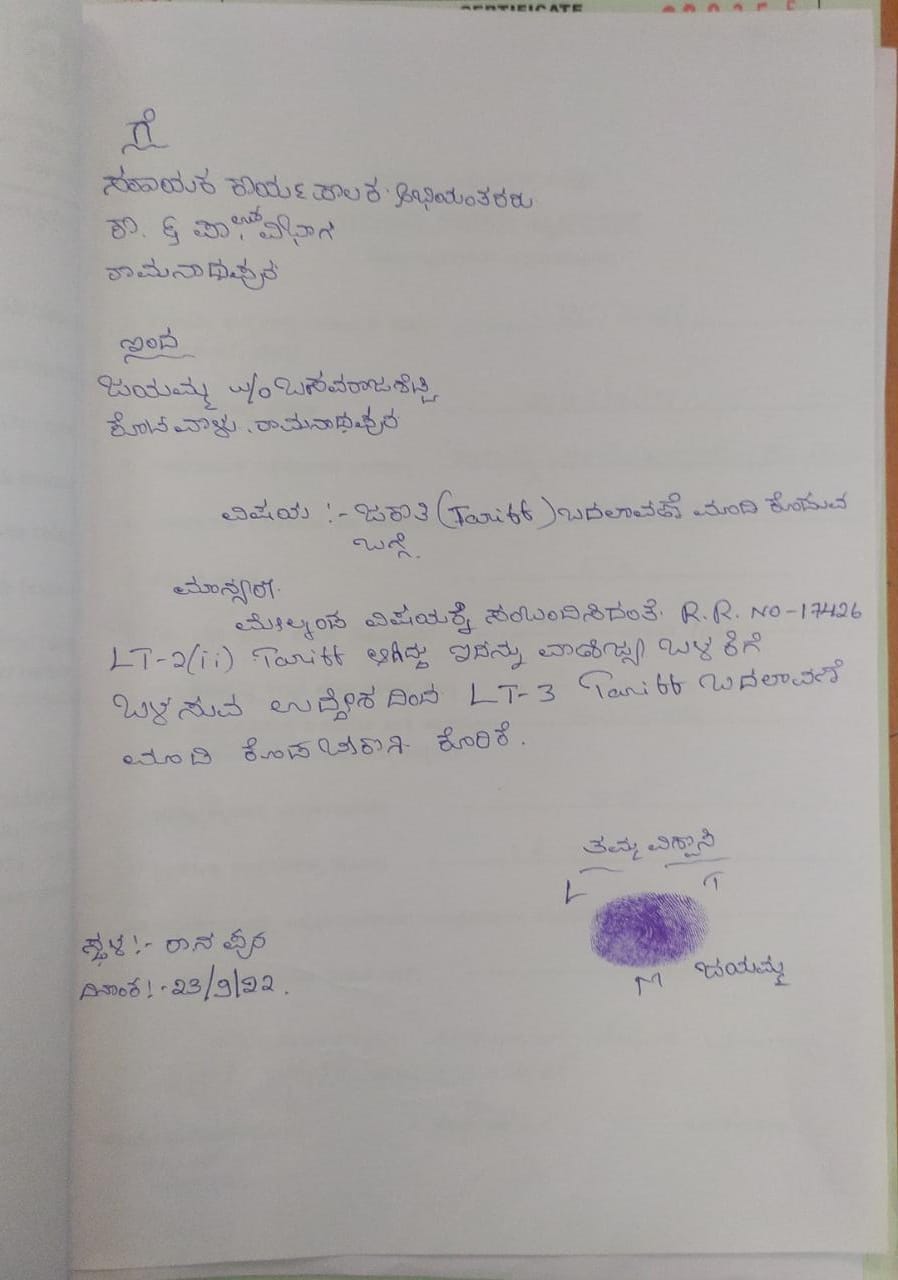 CERTIFICATE
ಗೆ
ಸಹಾಯಕ ಕಾರ್ಯಪಾಲಕ ಅಭಿಯಂತರರು
ಕಾ. & ಪಾ. ಉಪ ವಿಭಾಗ
ರಾಮನಾಥಪುರ
ಇಂದ
ಜಯಮ್ಮ w/o ಬಸವರಾಜಶೆಟ್ಟಿ
ಕೊಟವಾಳು. ರಾಮನಾಥಪುರ
ವಿಷಯ :- ಜಕಾತಿ (Tariff) ಬದಲಾವಣೆ ಮಾಡಿ ಕೊಡುವ
ಬಗ್ಗೆ.
ಮಾನ್ಯರೇ.
ಮೇಲ್ಕಂಡ ವಿಷಯಕ್ಕೆ ಸಂಬಂದಿಸಿದಂತೆ. R.R. NO-17426
LT-2(ii) Tariff ಆಗಿದ್ದು ಇದನ್ನು ವಾಣಿಜ್ಯ ಬಳಕೆಗೆ
ಬಳಸುವ ಉದ್ದೇಶದಿಂದ LT-3 Tariff ಬದಲಾವಣೆ
ಮಾಡಿ ಕೊಡಬೇಕಾಗಿ ಕೋರಿಕೆ.
ತಮ್ಮ ವಿಶ್ವಾಸಿ
L T
M ಜಯಮ್ಮ
ಸ್ಥಳ :- ರಾನಪುರ
ದಿನಾಂಕ :- 23/9/22.